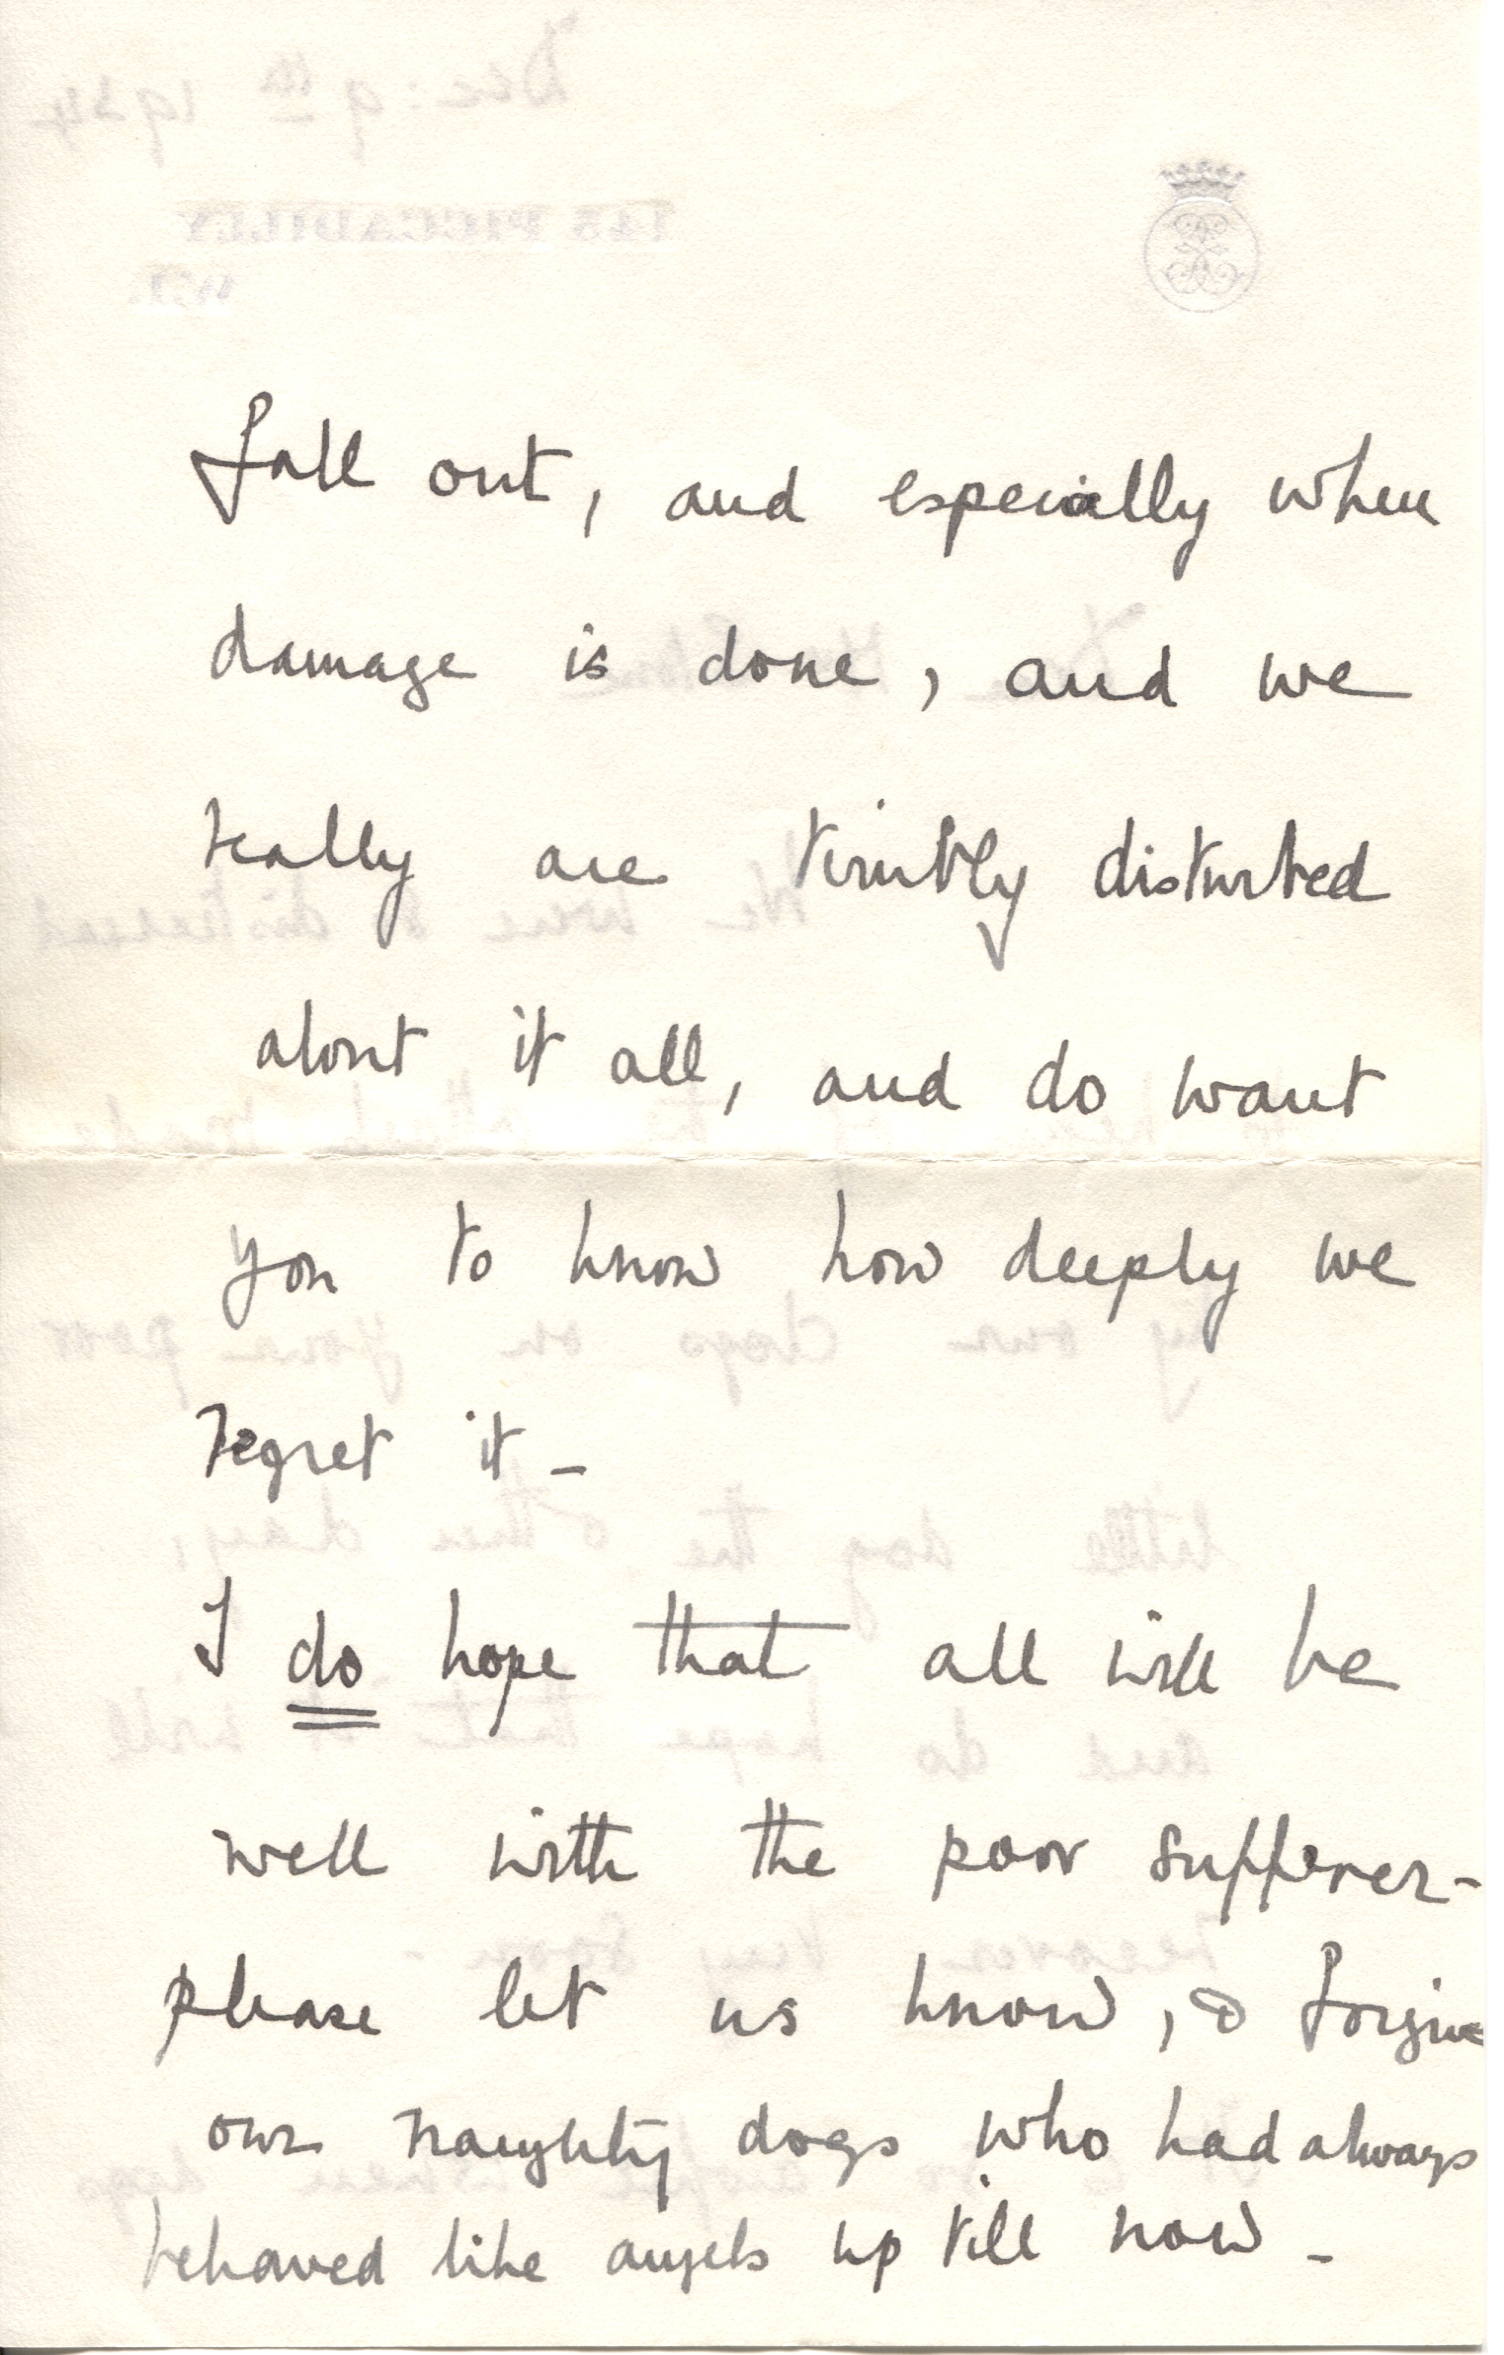 fall out, and especially when
damage is done, and we
really are terribly disturbed
about it all, and do want
you to know how deeply we
regret it –
I do hope that all will be
well with the poor sufferer –
please let us know, & forgive
our naughty dogs who had always
behaved like angels up till now –